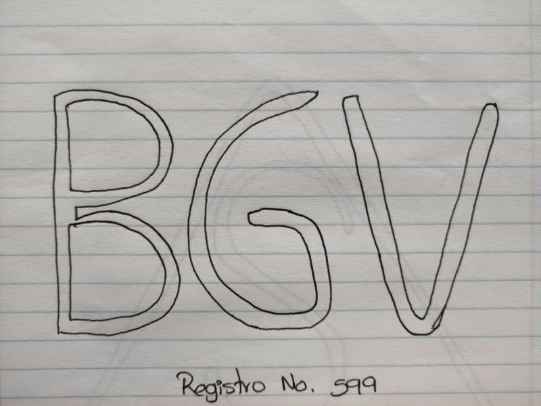 BGV
Registro No. 599